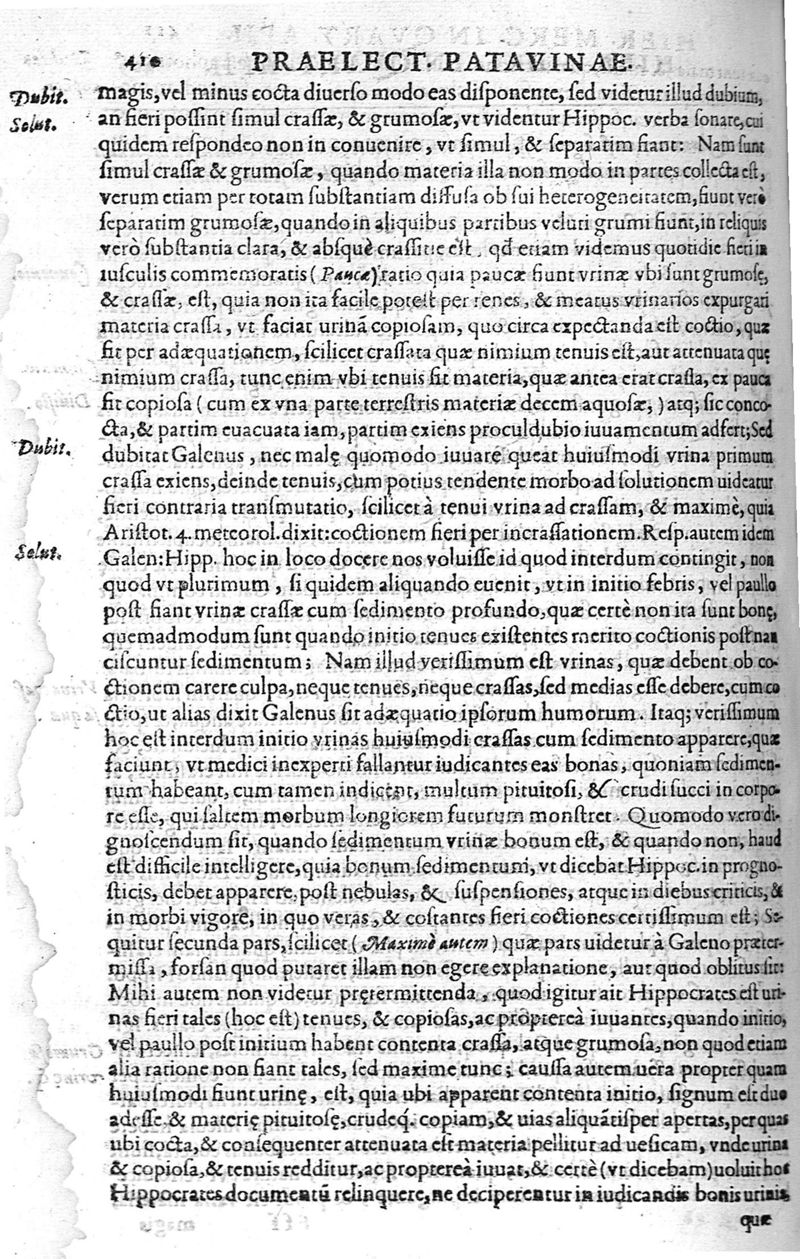 410 PRAELECT. PATAVINAE.
Dubit. magis, vel minus cocta diuerso modo eas disponente, sed videtur illud dubium,
Solut. an fieri possint simul crassæ, & grumosæ, vt videntur Hippoc. verba sonare, cui
quidem respondeo non in conuenire, vt simul, & separatim fiant: Nam sunt
simul crassæ & grumosæ, quando materia illa non modo in partes collecta est,
verum etiam per totam substantiam diffusa ob sui heterogeneitatem, fiunt verò
separatim grumosæ, quando in aliquibus partibus veluti grumi fiunt, in reliquis
verò substantia clara, & absquè crassitie est, qd etiam videmus quotidie fieri in
iusculis commemoratis (Paucæ) ratio quia paucæ fiunt vrinæ vbi sunt grumosę,
& crassæ, est, quia non ita facile potest per renes, & meatus vrinarios expurgari
materia crassa, vt faciat urinã copiosam, quo circa expectanda est coctio, quæ
fit per adæquationem, scilicet crassata quæ nimium tenuis est, aut attenuata quę
nimium crassa, tunc enim vbi tenuis fit materia, quæ antea erat crassa, ex pauca
fit copiosa (cum ex vna parte terrestris materiæ decem aquosæ,) atq; sic conco-
cta, & partim euacuata iam, partim exiens proculdubio iuuamentum adfert; Sed
Dubit. dubitat Galenus, nec malę quomodo iuuare queat huiusmodi vrina primum
crassa exiens, deinde tenuis, cum potius tendente morbo ad solutionem uideatur
fieri contraria transmutatio, scilicet à tenui vrina ad crassam, & maximè, quia
Aristot. 4. meteorol. dixit: coctionem fieri per incrassationem. Resp. autem idem
Solut. Galen: Hipp. hoc in loco docere nos voluisse id quod interdum contingit, non
quod vt plurimum, si quidem aliquando euenit, vt in initio febris, vel paullo
post fiant vrinæ crassæ cum sedimento profundo, quæ certè non ita sunt bonę,
quemadmodum sunt quando initio tenues existentes merito coctionis post nan
ciscuntur sedimentum; Nam illud verissimum est vrinas, quæ debent ob co-
ctionem carere culpa, neque tenues, neque crassas, sed medias esse debere, cum co
ctio, ut alias dixit Galenus sit adæquatio ipsorum humorum. Itaq; verissimum
hoc est interdum initio vrinas huiusmodi crassas cum sedimento apparere, quæ
faciunt, vt medici inexperti fallantur iudicantes eas bonas, quoniam sedimen-
tum habeant, cum tamen indicent, multum pituitosi, & crudi succi in corpo-
re esse, qui saltem morbum longiorem futurum monstret. Quomodo vero di-
gnoscendum sit, quando sedimentum vrinæ bonum est, & quando non, haud
est difficile intelligere, quia bonum sedimentum, vt dicebat Hippoc. in progno-
sticis, debet apparere, post nebulas, & suspensiones, atque in diebus criticis, &
in morbi vigore, in quo veras, & costantes fieri coctiones certissimum est; Se-
quitur secunda pars, scilicet (Maximè autem) quæ pars uidetur à Galeno præter-
missa, forsan quod putaret illam non egere explanatione, aut quod oblitus sit:
Mihi autem non videtur prętermittenda, quod igitur ait Hippocrates est uri-
nas fieri tales (hoc est) tenues, & copiosas, ac proptereà iuuantes, quando initio,
vel paullo post initium habent contenta crassa, atque grumosa, non quod etiam
alia ratione non fiant tales, sed maxime tunc; caussa autem uera propter quam
huiusmodi fiunt urinę, est, quia ubi apparent contenta initio, signum est duo
adesse & materię pituitosę, crudęq. copiam, & uias aliquãtisper apertas, per quas
ubi cocta, & consequenter attenuata est materia pellitur ad uesicam, vnde urina
& copiosa, & tenuis redditur, ac proptereà iuuat, & certè (vt dicebam) uoluit hoc
Hippocrates documentũ relinquere, ne deciperentur in iudicandis bonis urinis,
quæ